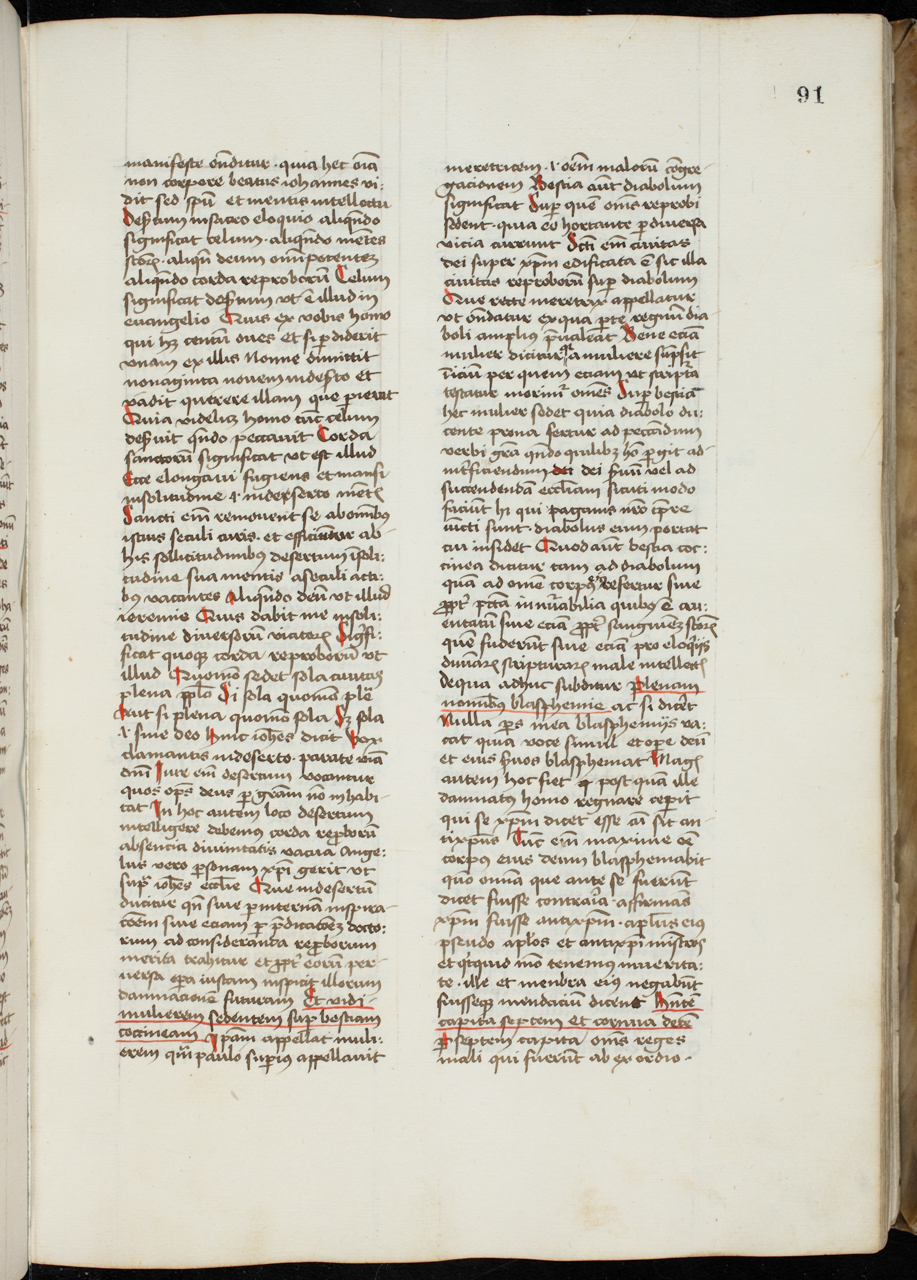 91
manifeste ondit̄ur · quia hec oīa
non corpore beatus iohannes vi-
dit sed spū et mentis intellectu
Desertum in sacro eloquio aliqn̄do
significat celum · aliqn̄do mētes
scōrꝫ · aliqn̄ deum omīpotentez
aliqn̄do corda reproborū Celum
significat desertum vt ē illud in
euangelio Quis ex vobis homo
qui hꝫ centū oues et si ꝑdiderit
vnam ex illis Nonne dimittit
nonaginta nouem in deserto et
vadit querere illam que perierat
Quia videlicꝫ homo tūc celum
deseruit qn̄do peccauit Corda
sanctorū significat vt est illud
Ecce elongaui fugiens et mansi
in solitudine .i. in deserto mētꝭ
Sancti eī remouent se ab omībus
istius seculi curis et efficiuntur ab
his sollicitudinibus desertum ī soli-
tudine sua mentis a seculi acti-
bꝰ vacantes Aliqn̄do deū vt illud
ieremie Quis dabit me in soli-
tudine diuersorū viatorꝫ Sigīfi-
ficat quoqꝫ corda reproborū vt
illud Quomō sedet sola ciuitas
plena pp̄lo Si sola quomō plē
Aut si plena quomō sola Sꝫ sola
.i. sine deo Hinc ioh̄es dicit Vox
clamantis in deserto · parate viā
dn̄i Iure eī desertum vocantur
quos op̄s deus ꝑ grām nō inhabi-
tat In hoc autem loco desertum
intelligere debemus corda reproborū
absencia diuinitatis vacua Ange-
lus vero ꝑsonam xp̄i gerit vt
supͣ ioh̄es eccl̄ie Que in desertū
ducitur qn̄ siue ꝑ internam inspira-
cōem siue eciam ꝑ p̄dicatōez docto-
rum ad consideranda reproborum
merita trahitur et ꝓpt̄ eorū per-
uersa oꝑa iustam inspicit illorum
damnacionē futuram Et vidi
mulierem sedentem suꝑ bestiam
coccineam Ip̄am appellat muli-
erem quā paulo suꝑius appellauit
meretricem .i. oēm malorū cōgre-
gacionem Bestia aūt diabolum
significat Suꝑ quē om̄s reprobi
sedent · quia eo hortante ꝑ diuersa
vicia currunt Sicut eī ciuitas
dei super xp̄m edificata ē sic illa
ciuitas reproborū suꝑ diabolum
Que recte meretrix appellatur
vt ondatur ex qua ꝑte regnū dia
boli amplius p̄ualeat Bene eciā
mulier dicitur qͣ a muliere sūpsit
iniciū per quem eciam vt scriptͣa
testatur morimur om̄es Suꝑ bestiā
hec mulier sedet quia diabolo du-
cente prona fertur ad peccandum
verbi grā qn̄do quilibꝫ hō ꝑgit ad
int̄ficiendum dei dei seruū vel ad
succendendā eccl̄iam sicuti modo
faciūt hi qui paganis nr̄o tꝑre
iūcti sunt · diabolus eum portat
cui insidet Quod aūt bestia coc-
cinea dicitur tam ad diabolum
quā ad omē corpꝰ eiꝰ refertur siue
ꝓpt̄ pctā innūabilia quibꝰ ē cru-
entatū siue eciā ꝓpt̄ sanguinēz scōrꝫ
quē fuderūt siue eciā pro eloqꝰijs
diuinarꝫ scripturarꝫ male intellectꝭ
De qua adhuc subditur Plenam
nominibꝰ blasphemie ac si dicēt
Nulla ꝑs mea blasphemijs va-
cat quia voce simul et oꝑe deū
et eius seruos blasphemat Magꝭ
autem hoc fiet ꝙ postquā ille
damnatꝰ homo regnare ceperit
qui se xp̄m dicet esse cū sit an-
tixpūs Tūc eī maxime oē
corpꝰ eius deum blasphemabit
quō omīa que ante se fuerūt
dicet fuisse contraria · affirmās
xp̄m fuisse antixp̄m · apl̄us eiꝰ
pseudo apl̄os et antixp̄i mīstros
et qicquid mō tenemus in verita-
te · ille et menbra eiꝰ negabūt
fuisseqꝫ mendaciū dicent Hn̄tē
capita septem et cornua decē
Per septem capita om̄s reges
mali qui fuerūt ab exordio ·